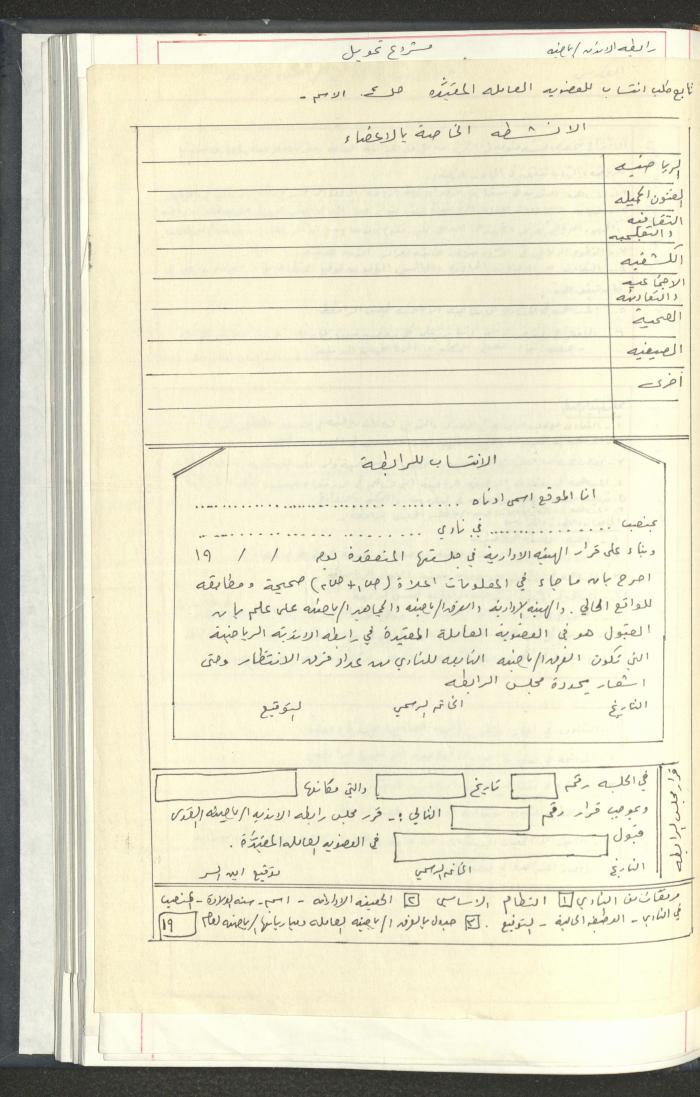 رابطه الاندية الرياضيه مشروع تحويل
تابع طلب انتساب للعضويه العامله المقيّده الاسم -
الانشطه الخاصة بالاعضاء
الرياضيه
الفنون الجميله
الثقافيه
والتعليميه
الكشفيه
الاجتماعيه
والتعاونيه
الصحية
الصيفيه
أخرى
الانتساب للرابطة
انا الموقع اسمي ادناه ........................
بمنصب .............. في نادي ..............
وبناء على قرار الهيئه الادارية في جلستها المنعقدة يوم / / ١٩
اصرح بان ما جاء في المعلومات اعلاه (ص١ + ص٢) صحيحة ومطابقه
للواقع الحالي. والهيئه الإدارية والفرق الرياضيه والجماهير الرياضيه على علم بان
القبول هو في العضوية العاملة المقيدة في رابطه الاندية الرياضية
التي تكون الفرق الرياضيه التابعه للنادي من عداد فرق الانتظار وحتى
اشعار يحدده مجلس الرابطه
التاريخ الخاتم الرسمي التوقيع
قرار مجلس الرابطه
في الجلسه رقم تاريخ والتي مكانها
وبموجب قرار رقم التالي :- قرر مجلس رابطه الانديه الرياضيه القدس
قبول في العضويه العامله المقيّدة .
التاريخ الخاتم الرسمي توقيع امين السر
مرفقات من النادي ١ النظام الاساسي ٢ الهيئه الاداريه - اسم - سنه الولادة - المنصب
في النادي - الوظيفه الحالية - التوقيع . ٣ جدول بالفرق الرياضيه العامله ومبارياتها الرياضيه لعام ١٩